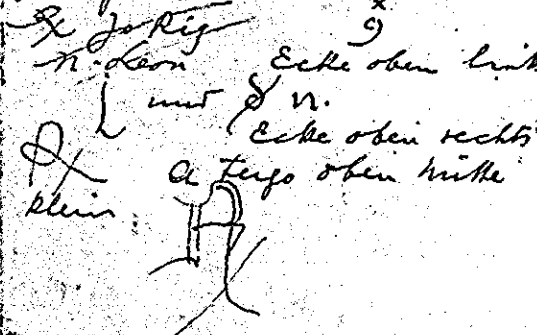 Jo Rig
n. Leon Ecke oben link
und n.
Ecke oben rechts
a tergo oben mitte
klein